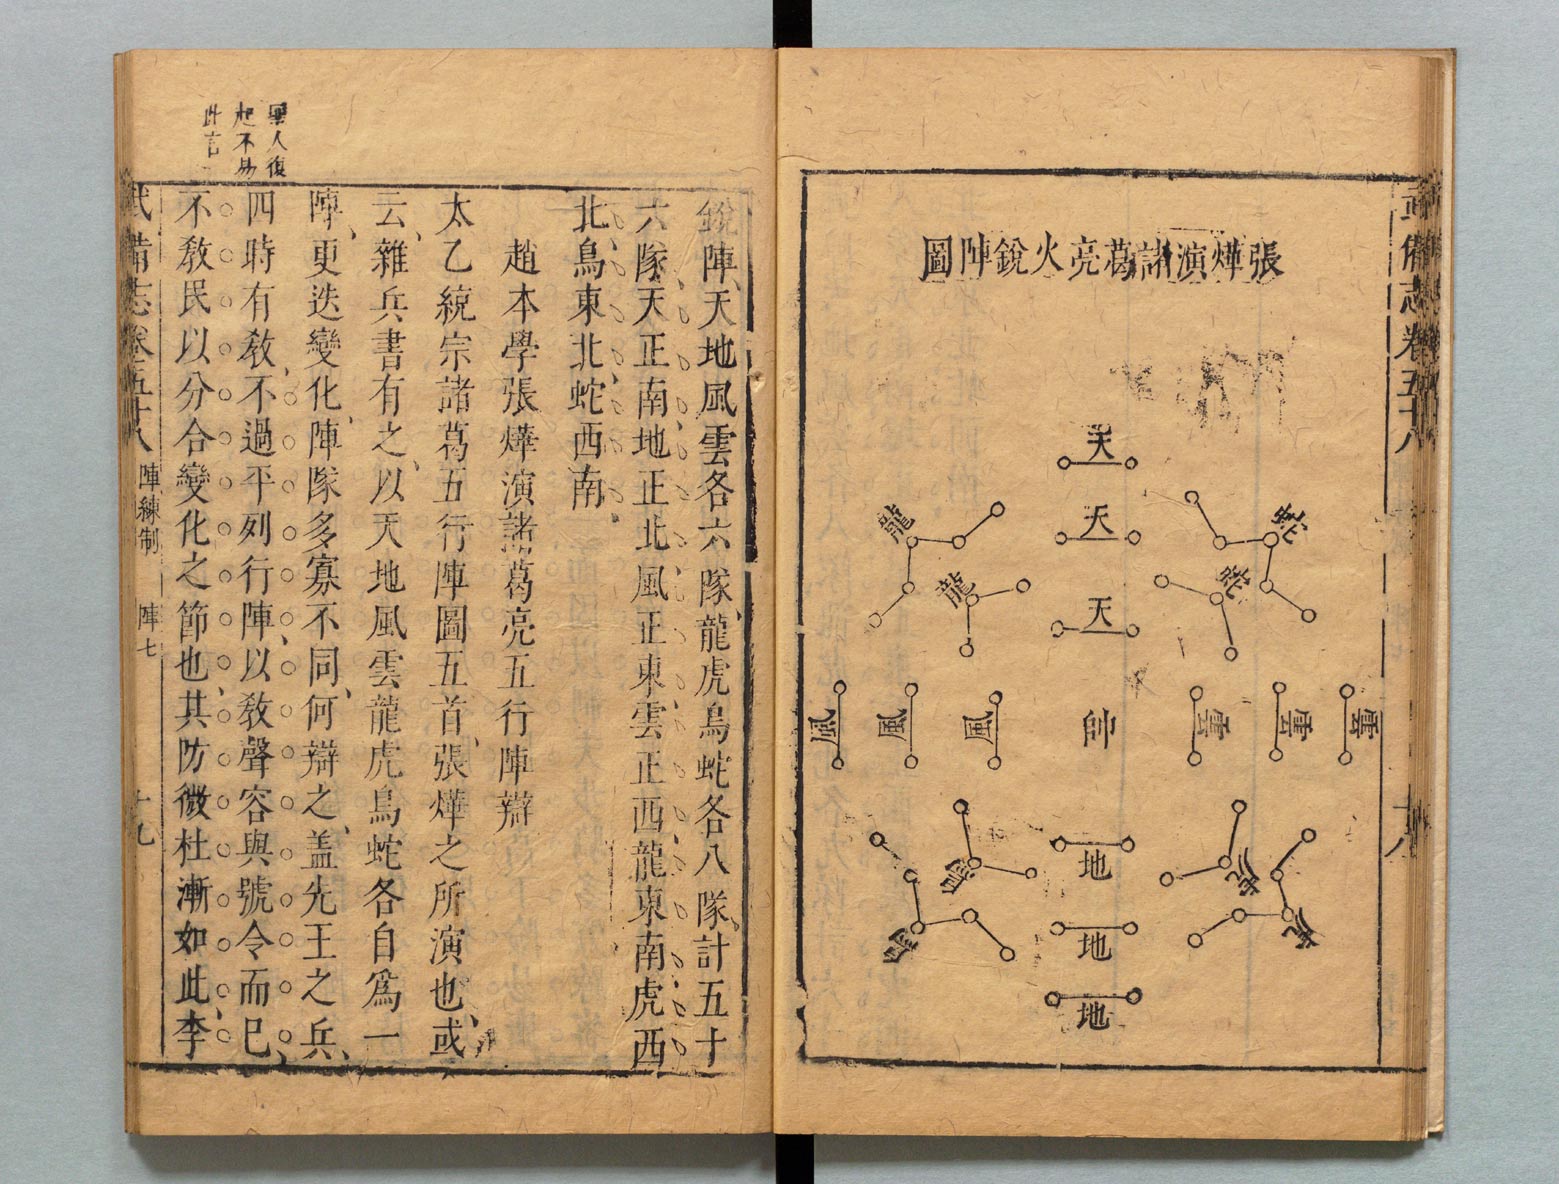 武備志卷五十八
十八
張燁演諸葛亮火銳陣圖
天
天
天
龍
龍
蛇
蛇
風
風
風
帥
雲
雲
雲
鳥
鳥
虎
虎
地
地
地
銳陣天地風雲各六隊龍虎鳥蛇各八隊計五十
六隊天正南地正北風正東雲正西龍東南虎西
北鳥東北蛇西南
趙本學張燁演諸葛亮五行陣辯
太乙統宗諸葛五行陣圖五首張燁之所演也或
云雜兵書有之以天地風雲龍虎鳥蛇各自為一
陣更迭變化陣隊多寡不同何辯之盖先王之兵
四時有教不過平列行陣以教聲容與號令而已
不教民以分合變化之節也其防微杜漸如此李
聖人復
起不易
此言
武備志卷五十八
陣練制
陣七
十九